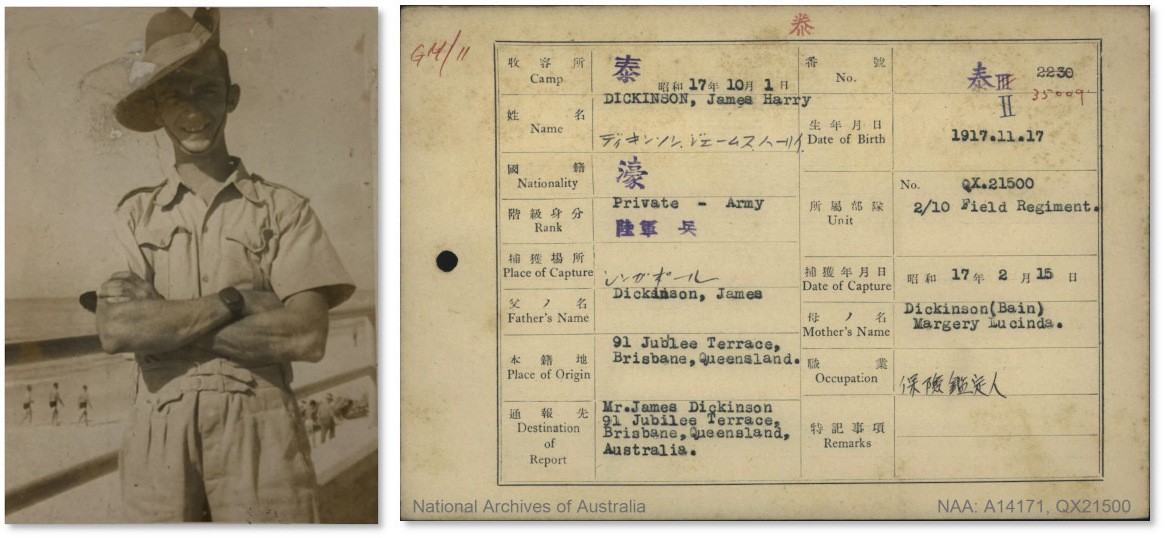 泰
GM/11
收容所
Camp
泰
昭和 17年 10月 1日
番號
No.
泰III 2230
II 35009
姓名
Name
DICKINSON, James Harry
ディキンソン、ジェームス ハーリイ
生年月日
Date of Birth
1917.11.17
國籍
Nationality
濠
階級身分
Rank
Private - Army
陸軍 兵
所屬部隊
Unit
No. QX.21500
2/10 Field Regiment.
捕獲場所
Place of Capture
シンガポール
捕獲年月日
Date of Capture
昭和 17年 2月 15日
父ノ名
Father's Name
Dickinson, James
母ノ名
Mother's Name
Dickinson(Bain)
Margery Lucinda.
本籍地
Place of Origin
91 Jublee Terrace,
Brisbane,Queensland.
職業
Occupation
保險鑑定人
通報先
Destination
of
Report
Mr.James Dickinson
91 Jubilee Terrace,
Brisbane,Queensland,
Australia.
特記事項
Remarks
National Archives of Australia
NAA: A14171, QX21500